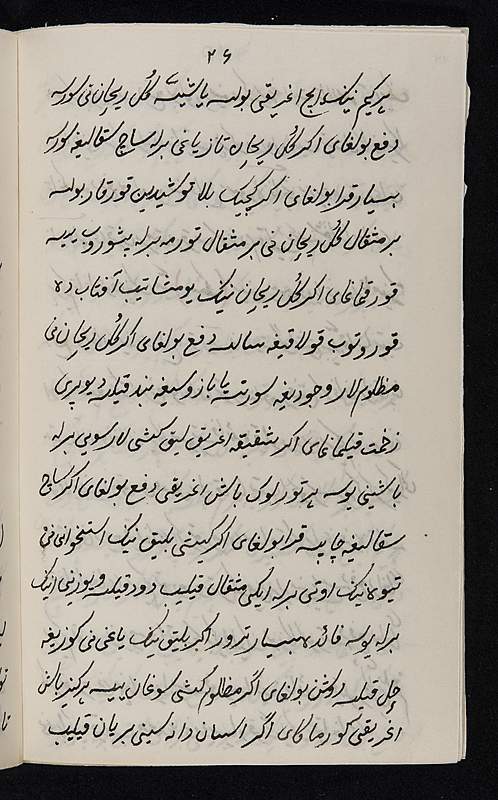 ۲۶
هرکیم نینک ایچ اغریقی بولسه یا شیشه گُل ریحان نی سورسه
دفع بولغای اکر گُل ریحان تازیاغی برله ساچ سقالیغه سورسه
بسیار قرا بولغای اکر کیچیک بالا توشیدین قورقار بولسه
بر مثقال گُل ریحان نی بر مثقال تورمه برله یشوروب ییسه
قورقماغای اکر گُل ریحان نینک یومشاتیب آفتاب ده
قوروتوب قولاقیغه سالسه دفع بولغای اکر گُل ریحان نی
مظلوم لار وجودیغه سورتسه یا بازوسیغه بند قیلسه دیو پری
زخمت قیلماغای اکر شقیقه اغریق لیق کشی لار سویی برله
باشینی یوسه هر تورلوک باش اغریقی دفع بولغای اکر ساچ
سقالیغه چاپسه قرا بولغای اکر کیشی بلیق نینک استخوانی نی
تیوه نینک اوتی برله ایکی مثقال قیلیب دود قیلسه و یوزینی انینک
برله یوسه فائده بسیار ترور اکر بلیق نینک یاغی نی کوزیغه
حل قیلسه روشن بولغای اگر مظلوم کشی سوغان ییسه هرکیز باش
اغریقی کورماکای اگر اسبان دانه سینی بریان قیلیب